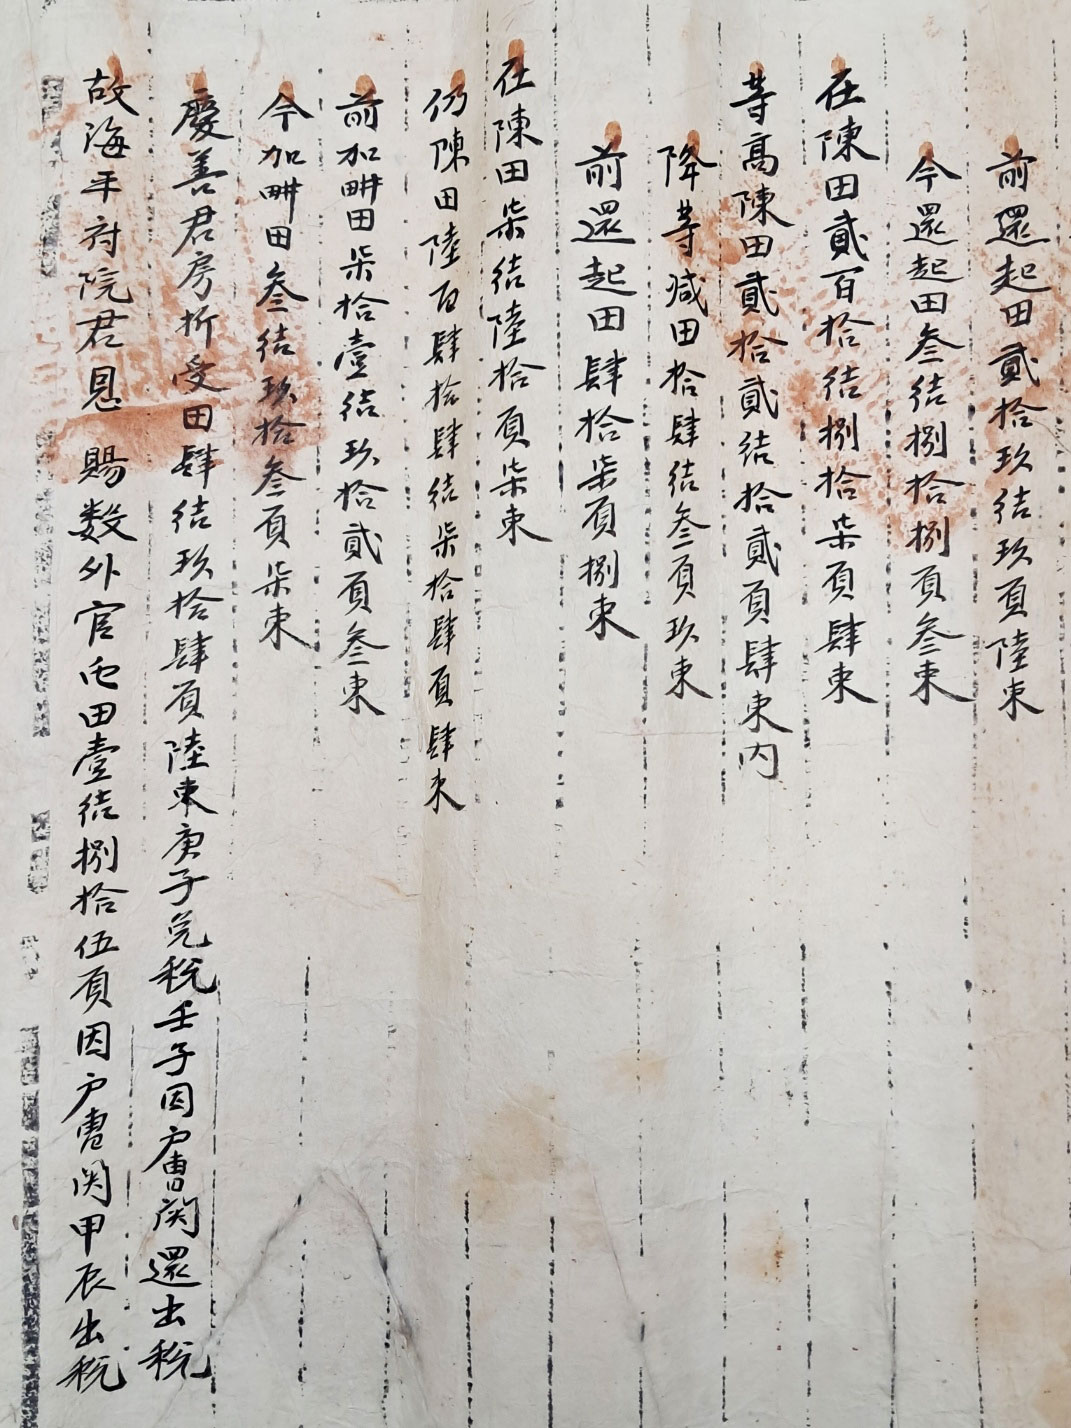 前還起田貳拾玖结玖負陸束
今還起田叁结捌拾捌負叁束
在陳田貳百拾结捌拾柒負肆束
等髙陳田貳拾貳结拾貳負肆束內
降等减田拾肆结叁負玖束
前還起田肆拾柒負捌束
在陳田柒结陸拾負柒束
仍陳田陸百肆拾肆结柒拾肆負肆束
前加畊田柒拾壹结玖拾貳負叁束
今加畊田叁结玖拾叁負柒束
慶善君房折受田肆结玖拾肆負陸束庚子免税壬子因戶曹関還出税
故海平府院君恩賜數外官屯田壹结捌拾伍負因戶曹関甲辰出税